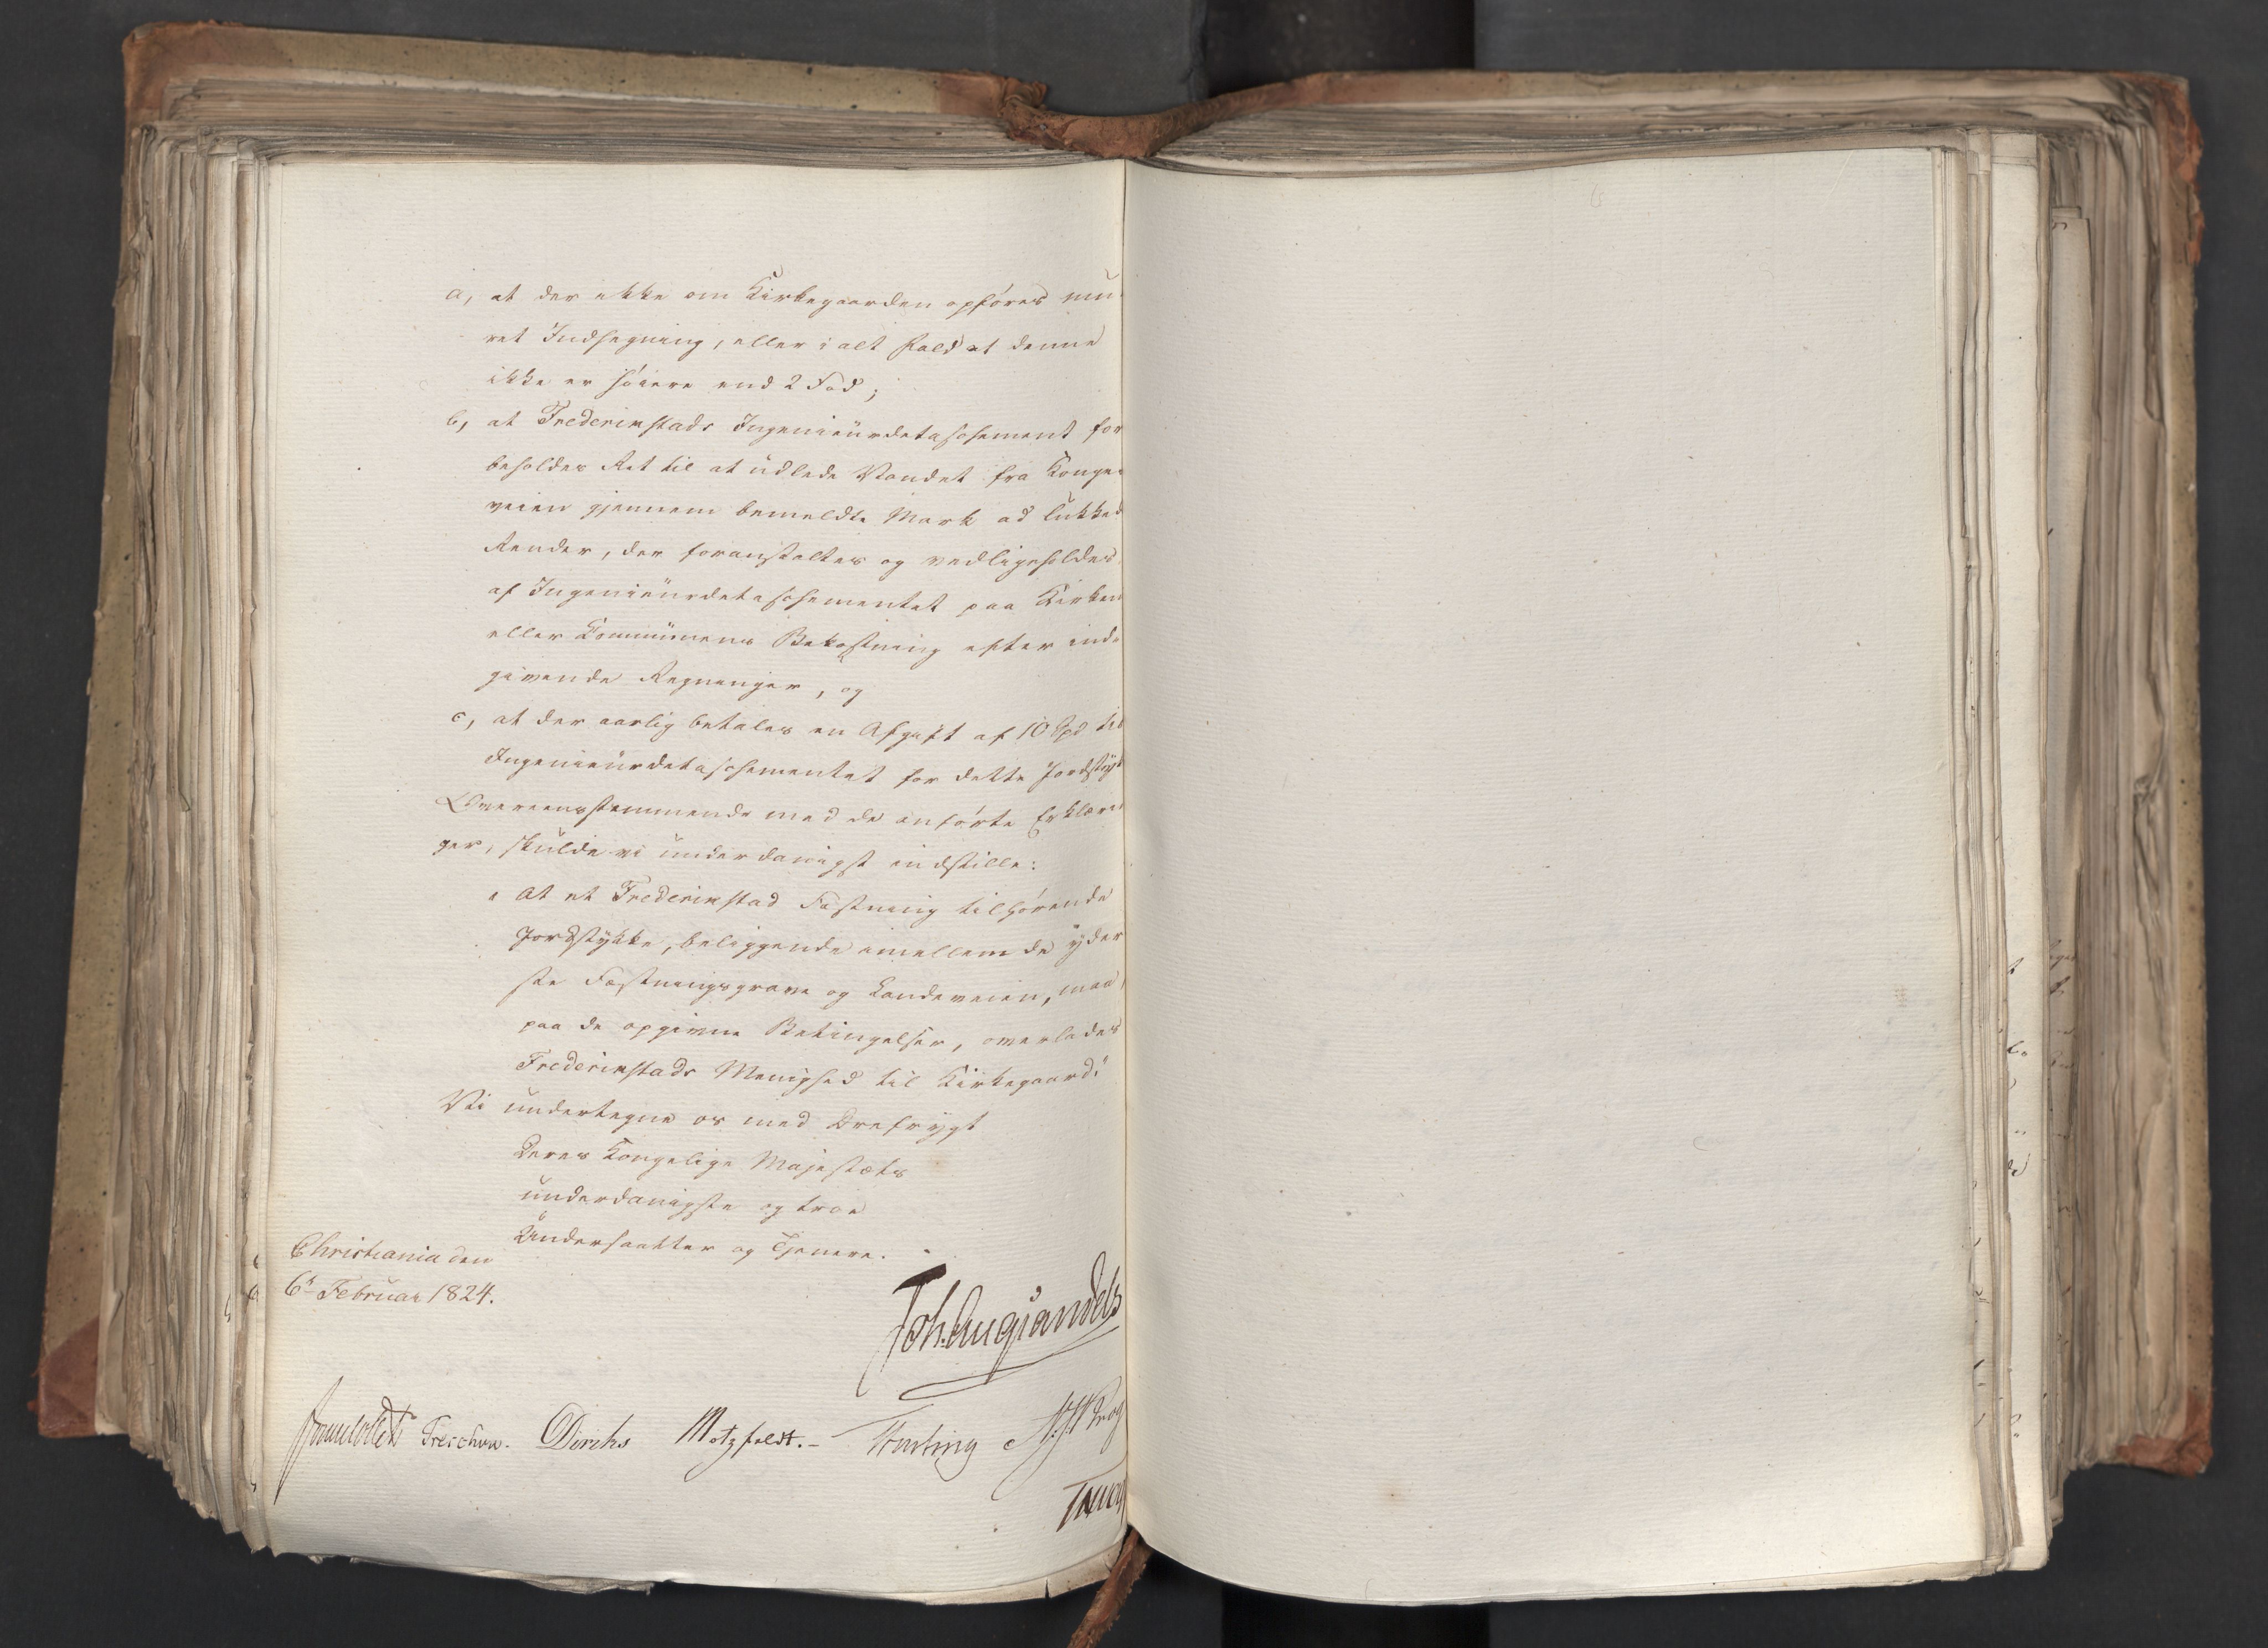 a, at der ikke om Kirkegaarden opføres mu-
ret Indhegning, eller i alt Fald at denne
ikke er høiere end 2 Fod;
b, at Fredericstads Ingenieurdetaschement for
beholder Ret til at udlede Vandet fra Konge-
veien gjennem bemeldte Mark ad lukked
Render, der foranstaltes og vedligeholdes
af Ingenieurdetaschementet paa Kirken
eller Communens Bekostning efter ind-
givende Regninger, og
c, at der aarlig betales en Afgift af 10 Spd til
Ingenieurdetaschementet for dette Jordstyk
Overeensstemmende med de anførte Erklærin
ger, skulde vi underdanigst indstille:
" At et Fredericstad Fæstning tilhørende
Jordstykke, beliggende imellem de yder
ste Fæstningsgrave og Landeveien, maa
paa de opgivne Betingelser, overlades
Fredericstads Menighed til Kirkegaard."
Vi undertegne os med Ærefrygt
Deres Kongelige Majestæts
underdanigste og troe
Undersaatter og Tjenere.
Christiania den
6te Februar 1824.
Joh. Aug Sandels
Jonas Collett Treschow. Diriks Motzfeldt. Fasting